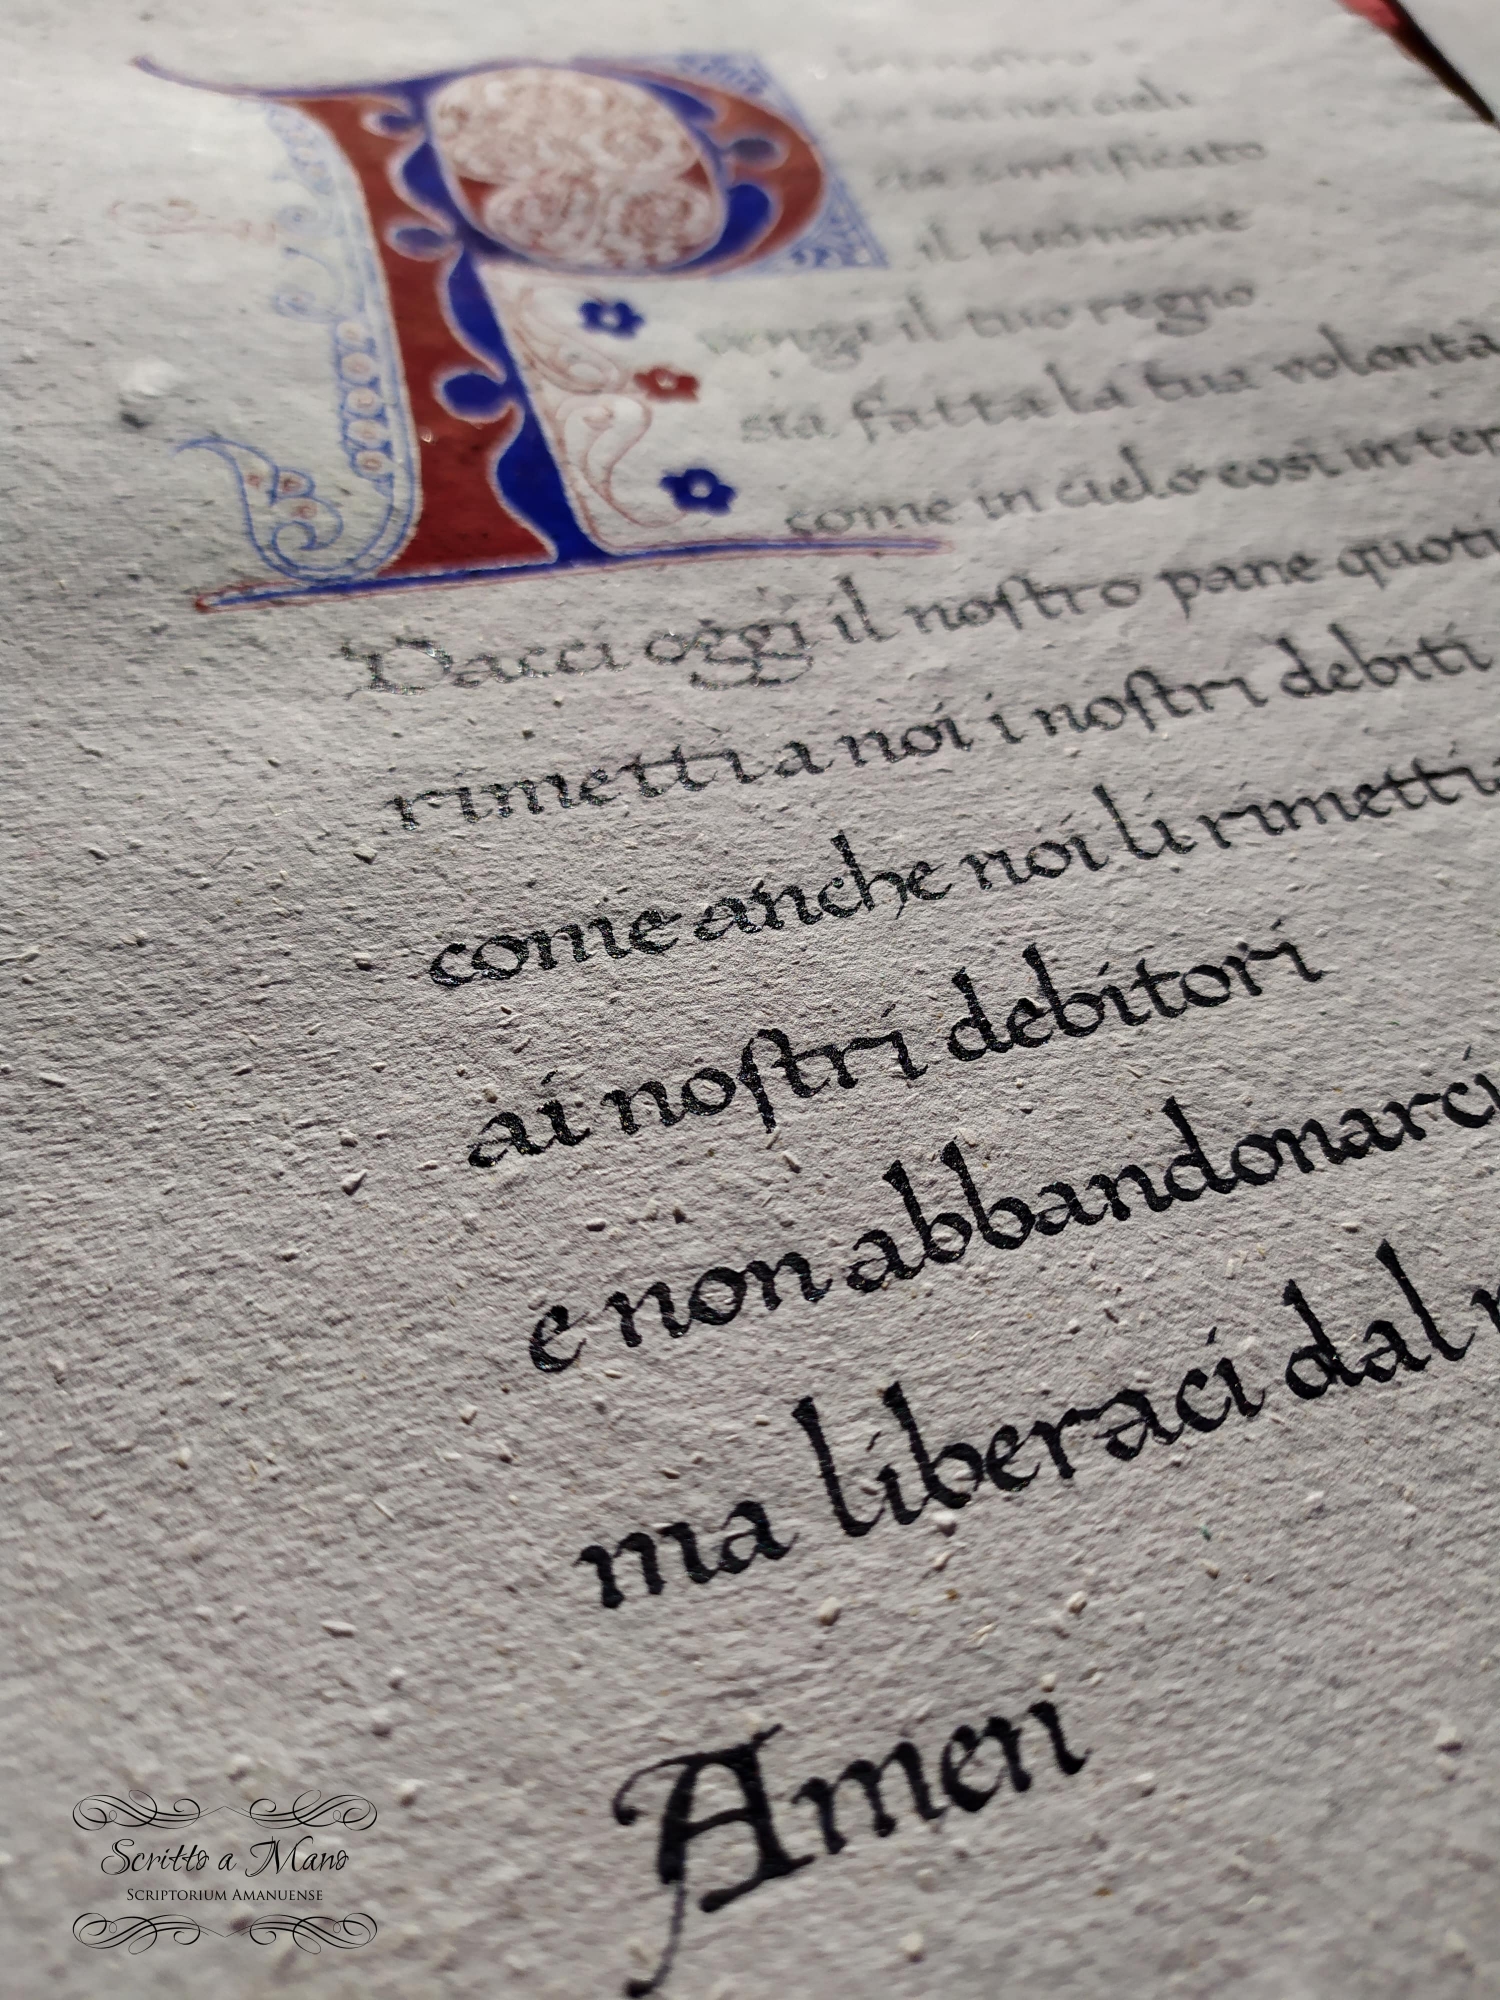 sia santificato
il tuo nome
venga il tuo regno
sia fatta la tua volontà
come in cielo così in ter
Dacci oggi il noſtro pane quoti
rimetti a noi i noſtri debiti
come anche noi li rimettia
ai noſtri debitori
e non abbandonarci
ma liberaci dal
Amen
Scritto a Mano
SCRIPTORIUM AMANUENSE